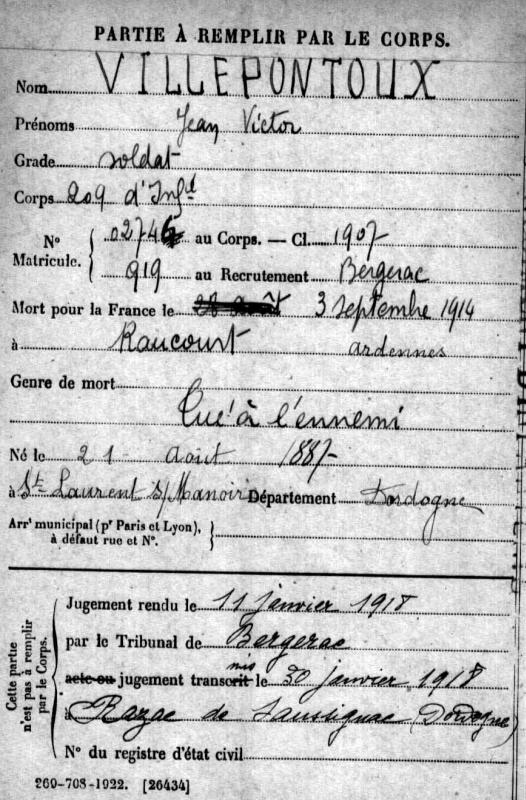 PARTIE À REMPLIR PAR LE CORPS.
Nom VILLEPONTOUX
Prénoms Jean Victor
Grade soldat
Corps 209 d'Infie
N° Matricule. { 02746 au Corps. — Cl. 1907
919 au Recrutement Bergerac
Mort pour la France le 28 août 3 septembre 1914
à Raucourt ardennes
Genre de mort
Tué à l'ennemi
Né le 21 Août 1887
à St Laurent s/Manoir Département Dordogne
Arrt municipal (pr Paris et Lyon), à défaut rue et N°. }
Cette partie n'est pas à remplir par le Corps.
Jugement rendu le 11 janvier 1918
par le Tribunal de Bergerac
acte ou jugement transcrit mis le 30 janvier 1918
à Razac de Saussignac (Dordogne)
N° du registre d'état civil
260-708-1922. [26434]